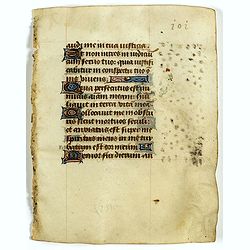 audi me in tua iusticia
Et non intres in iudiciu
cum servo tuo: quia
cabitur in conspectu tuo
nis vivens
Quia persecutus est ini
micus animam meam
liavit in terra vita mea
Collocavit me in obscu
ris sicut mortuos seculi
et anxiatus est super me
spiritus meus in me tur
batum est cor meum
Memor fui dierum an